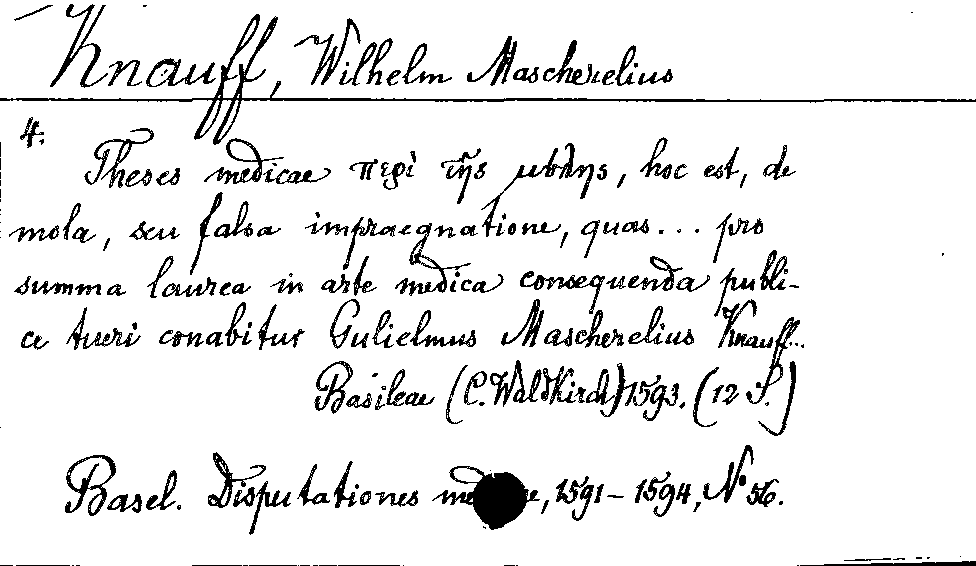 Knauff, Wilhelm Mascherelius
4.
Theses medicae περὶ τῆς μύλης, hoc est, de
mola, seu falsa impraegnatione, quas... pro
summa laurea in arte medica consequenda publi-
ce tueri conabitur Gulielmus Mascherelius Knauff...
Basileae (C. Waldkirch) 1593. (12 S.)
Basel. Disputationes 1591-1594, No 56.